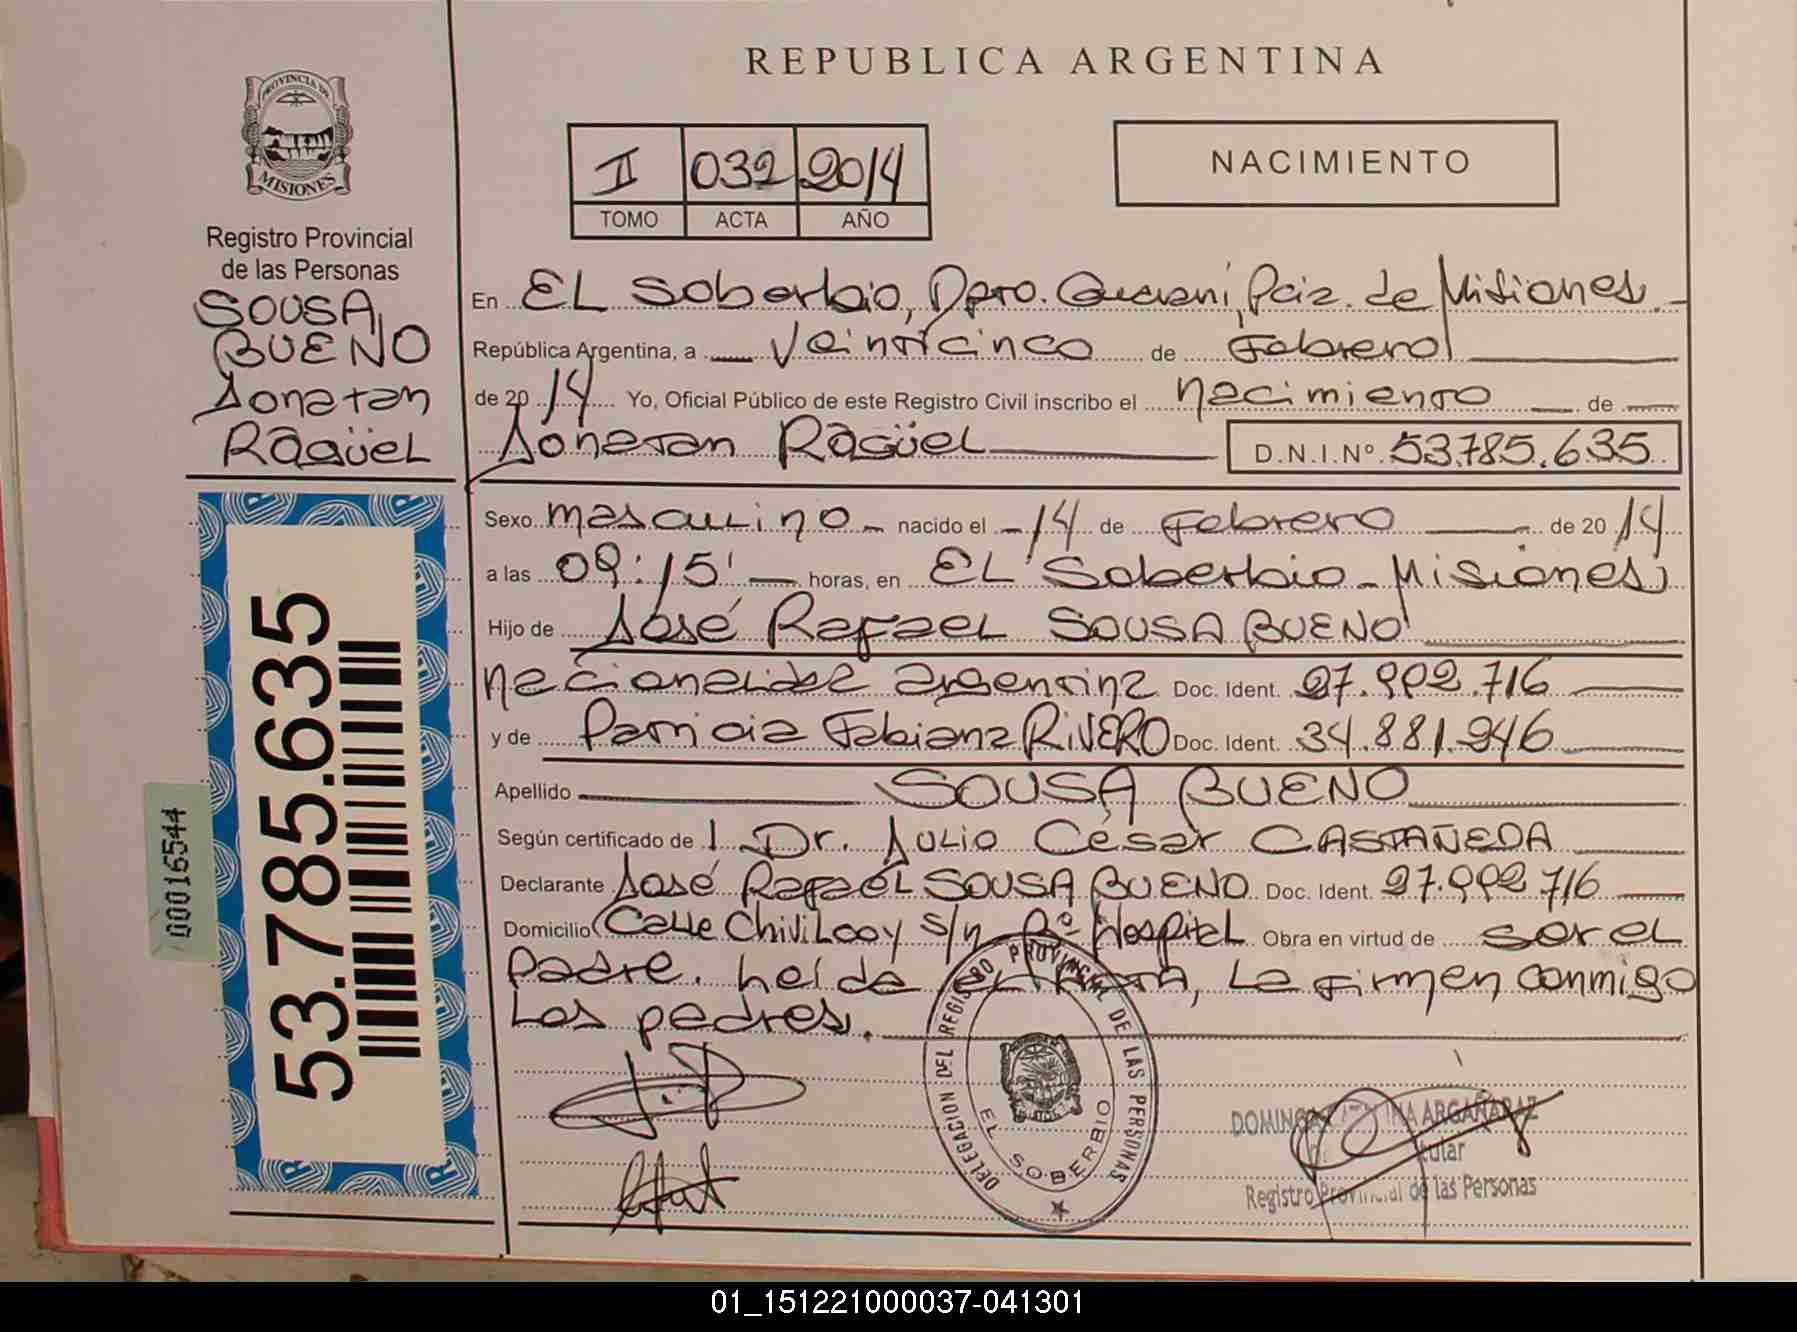 REPUBLICA ARGENTINA
PROVINCIA DE
MISIONES
Registro Provincial
de las Personas
SOUSA
BUENO
Jonatan
Ragüel
II 032 2014
TOMO ACTA AÑO
NACIMIENTO
En EL Soberbio, Dpto. Guaraní, Pcia. de Misiones
República Argentina, a Veinticinco de Febrero
de 2014 Yo, Oficial Público de este Registro Civil inscribo el nacimiento de
Jonatan Ragüel D.N.I.Nº 53.785.635
Sexo masculino nacido el 14 de Febrero de 2014
a las 09:15' horas, en EL Soberbio - Misiones,
Hijo de José Rafael SOUSA BUENO
nacionalidad argentina Doc. Ident. 27.992.716
y de Patricia Fabiana RIVERO Doc. Ident. 34.881.946
Apellido SOUSA BUENO
Según certificado de Dr. Julio César CASTAÑEDA
Declarante José Rafael SOUSA BUENO Doc. Ident. 27.992.716
Domicilio Calle Chivilcoy s/n Bº Hospital Obra en virtud de ser el
Padre. Leída el Acta, La firman conmigo
Los padres.
53.785.635
00016544
DELEGACION DEL REGISTRO PROVINCIAL DE LAS PERSONAS
EL SOBERBIO
ARGAÑARAZ
Registro Provincial de las Personas
01_151221000037-041301